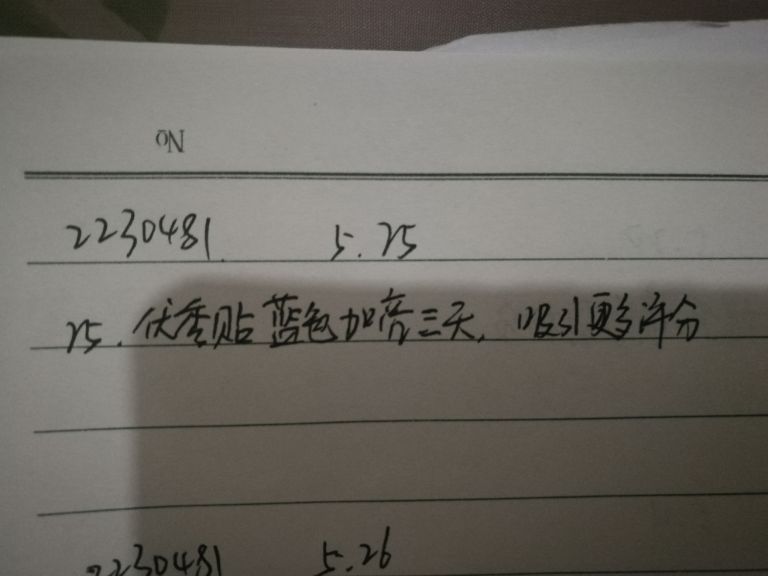 No
2230481 5.25
25.优秀贴 蓝色加亮三天, 吸引更多评分
2230481 5.26